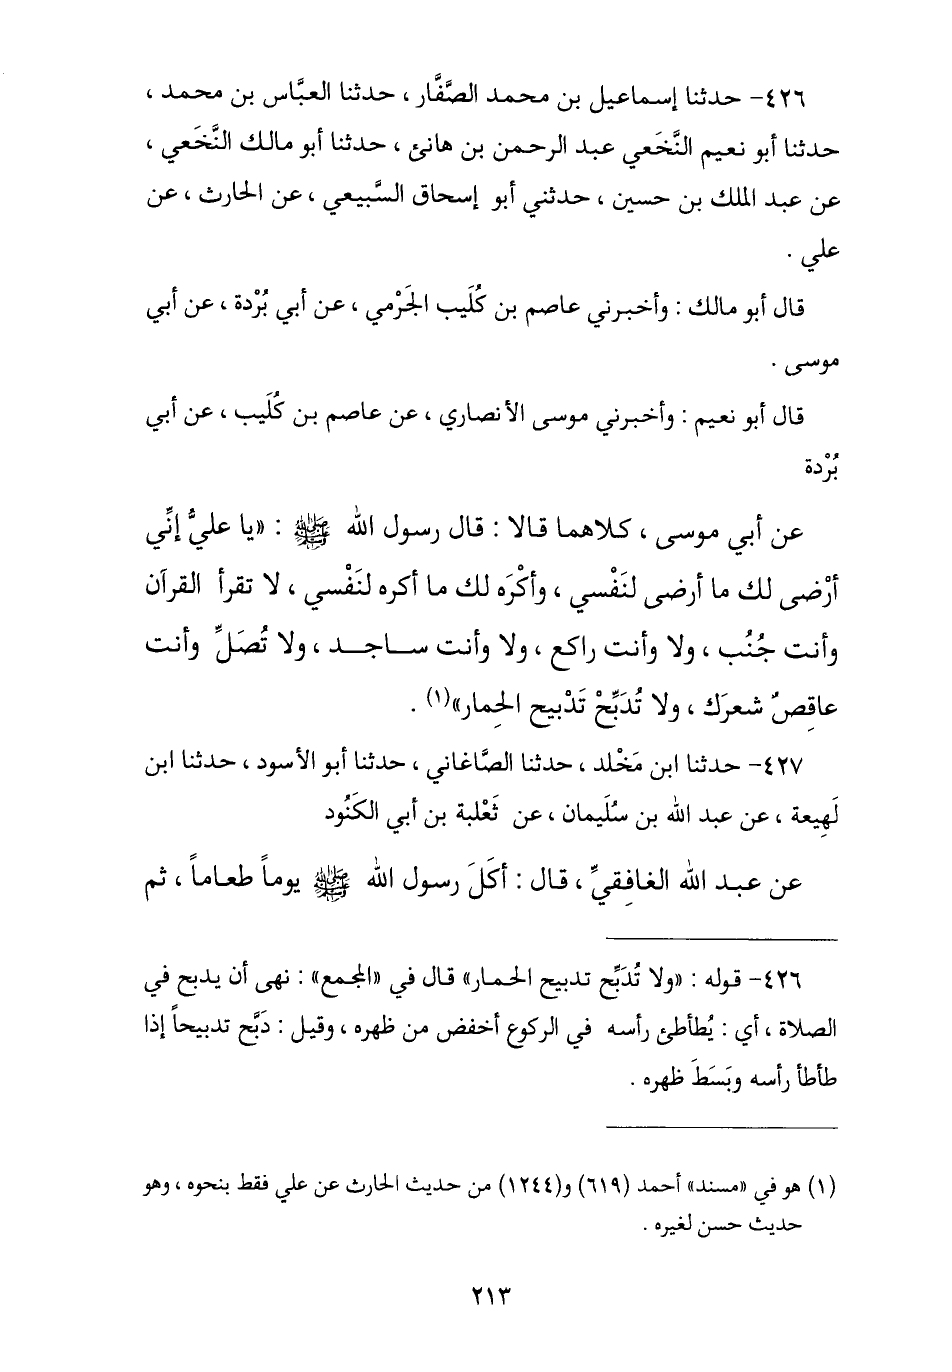 ٤٢٦- حدثنا إسماعيل بن محمد الصَّفَّار ، حدثنا العبَّاس بن محمد ،
حدثنا أبو نعيم النَّخَعي عبد الرحمن بن هانئ ، حدثنا أبو مالك النَّخَعي ،
عن عبد الملك بن حسين ، حدثني أبو إسحاق السَّبيعي ، عن الحارث ، عن
علي .
قال أبو مالك : وأخبرني عاصم بن كُلَيب الجَرْمي ، عن أبي بُرْدة ، عن أبي
موسى .
قال أبو نعيم : وأخبرني موسى الأنصاري ، عن عاصم بن كُلَيب ، عن أبي
بُرْدة
عن أبي موسى ، كلاهما قالا : قال رسول الله ﷺ : «يا عليُّ إنِّي
أرْضى لك ما أرضى لنَفْسي ، وأكْرَه لك ما أكره لنَفْسي ، لا تقرأ القرآن
وأنت جُنُب ، ولا وأنت راكع ، ولا وأنت ساجد ، ولا تُصَلِّ وأنت
عاقِصٌ شعرَك ، ولا تُدَبِّحْ تَدْبيح الحِمار»(١) .
٤٢٧- حدثنا ابن مَخْلد ، حدثنا الصَّاغاني ، حدثنا أبو الأسود ، حدثنا ابن
لَهِيعة ، عن عبد الله بن سُلَيمان ، عن ثَعْلبة بن أبي الكَنُود
عن عبد الله الغافِقيِّ ، قال : أكَلَ رسول الله ﷺ يوماً طعاماً ، ثم
٤٢٦- قوله : «ولا تُدَبِّح تدبيح الحمار» قال في «المجمع» : نهى أن يدبح في
الصلاة ، أي : يُطأطئ رأسه في الركوع أخفض من ظهره ، وقيل : دَبَّح تدبيحاً إذا
طأطأ رأسه وبَسَطَ ظهره .
(١) هو في «مسند» أحمد (٦١٩) و(١٢٤٤) من حديث الحارث عن علي فقط بنحوه ، وهو
حديث حسن لغيره .
٢١٣